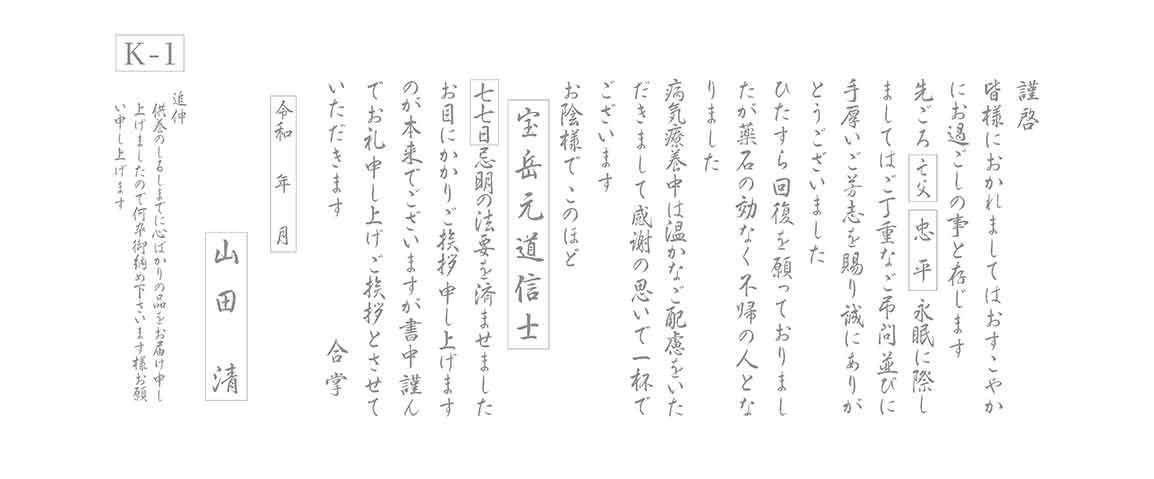 謹啓
皆様におかれましてはおすこやか
にお過ごしの事と存じます
先ごろ 亡父 忠平 永眠に際し
ましてはご丁重なご弔問並びに
手厚いご芳志を賜り誠にありが
とうございました
ひたすら回復を願っておりまし
たが薬石の効なく不帰の人とな
りました
病気療養中は温かなご配慮をいた
だきまして感謝の思いで一杯で
ございます
お陰様でこのほど
宝岳元道信士
七七日忌明の法要を済ませました
お目にかかりご挨拶申し上げます
のが本来でございますが書中謹ん
でお礼申し上げご挨拶とさせて
いただきます
合掌
令和 年 月
山田 清
追伸
供養のしるしまでに心ばかりの品をお届け申し
上げましたので何卒御納め下さいます様お願
い申し上げます
K-1